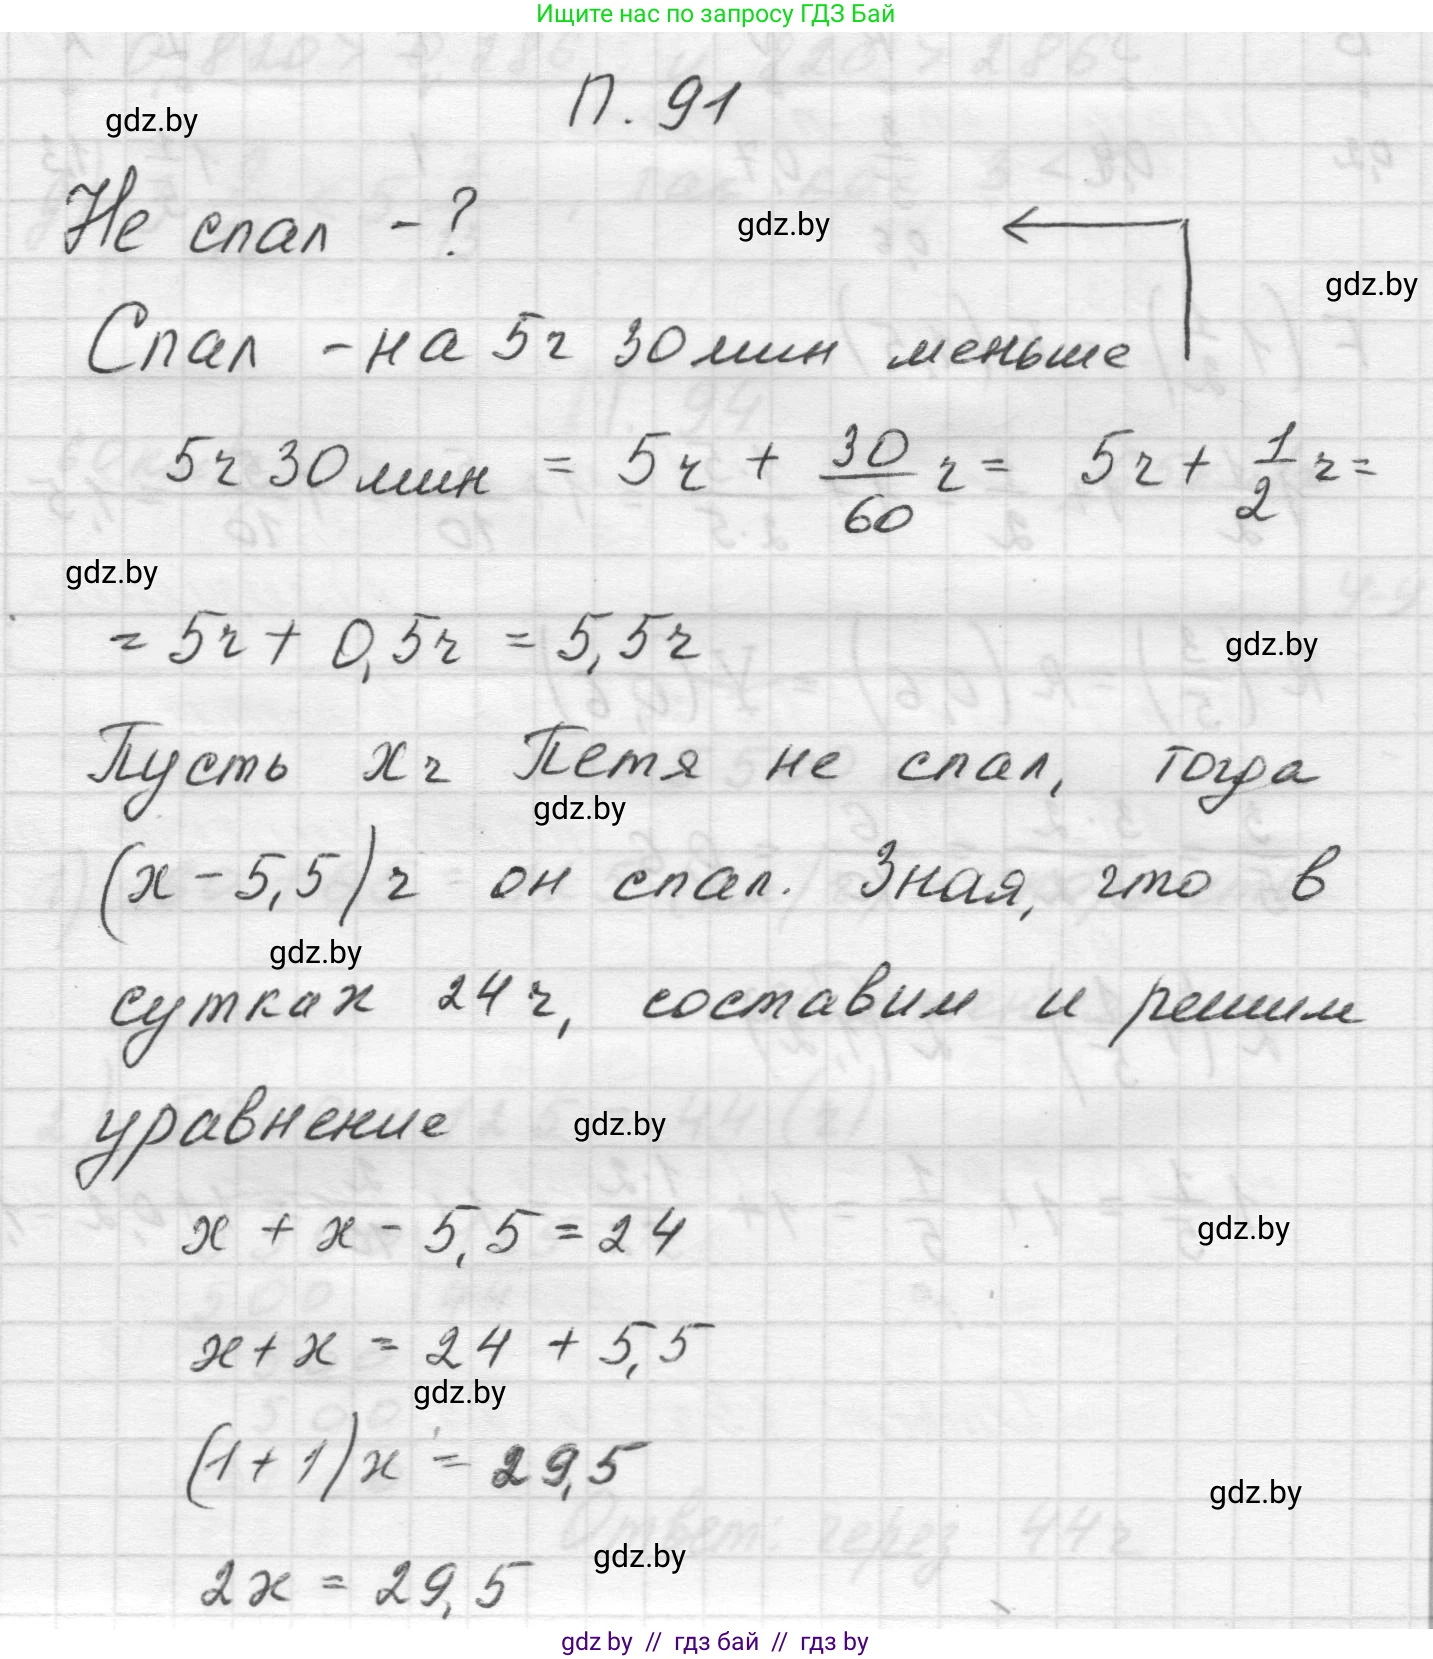 Ищите нас по запросу ГДЗ Бай
П. 91
gdz.by
Не спал - ?
gdz.by
gdz.by
Спал - на 5ч 30 мин меньше
5ч 30 мин = 5ч + 30/60 ч = 5ч + 1/2 ч =
gdz.by
= 5ч + 0,5ч = 5,5ч
gdz.by
Пусть xч Петя не спал, тогда
gdz.by
(x - 5,5)ч он спал. Зная, что в
gdz.by
сутках 24ч, составим и решим
уравнение
gdz.by
x + x - 5,5 = 24
gdz.by
x + x = 24 + 5,5
gdz.by
(1 + 1)x = 29,5
gdz.by
gdz.by
2x = 29,5
gdz by // гдз бай // гдз by